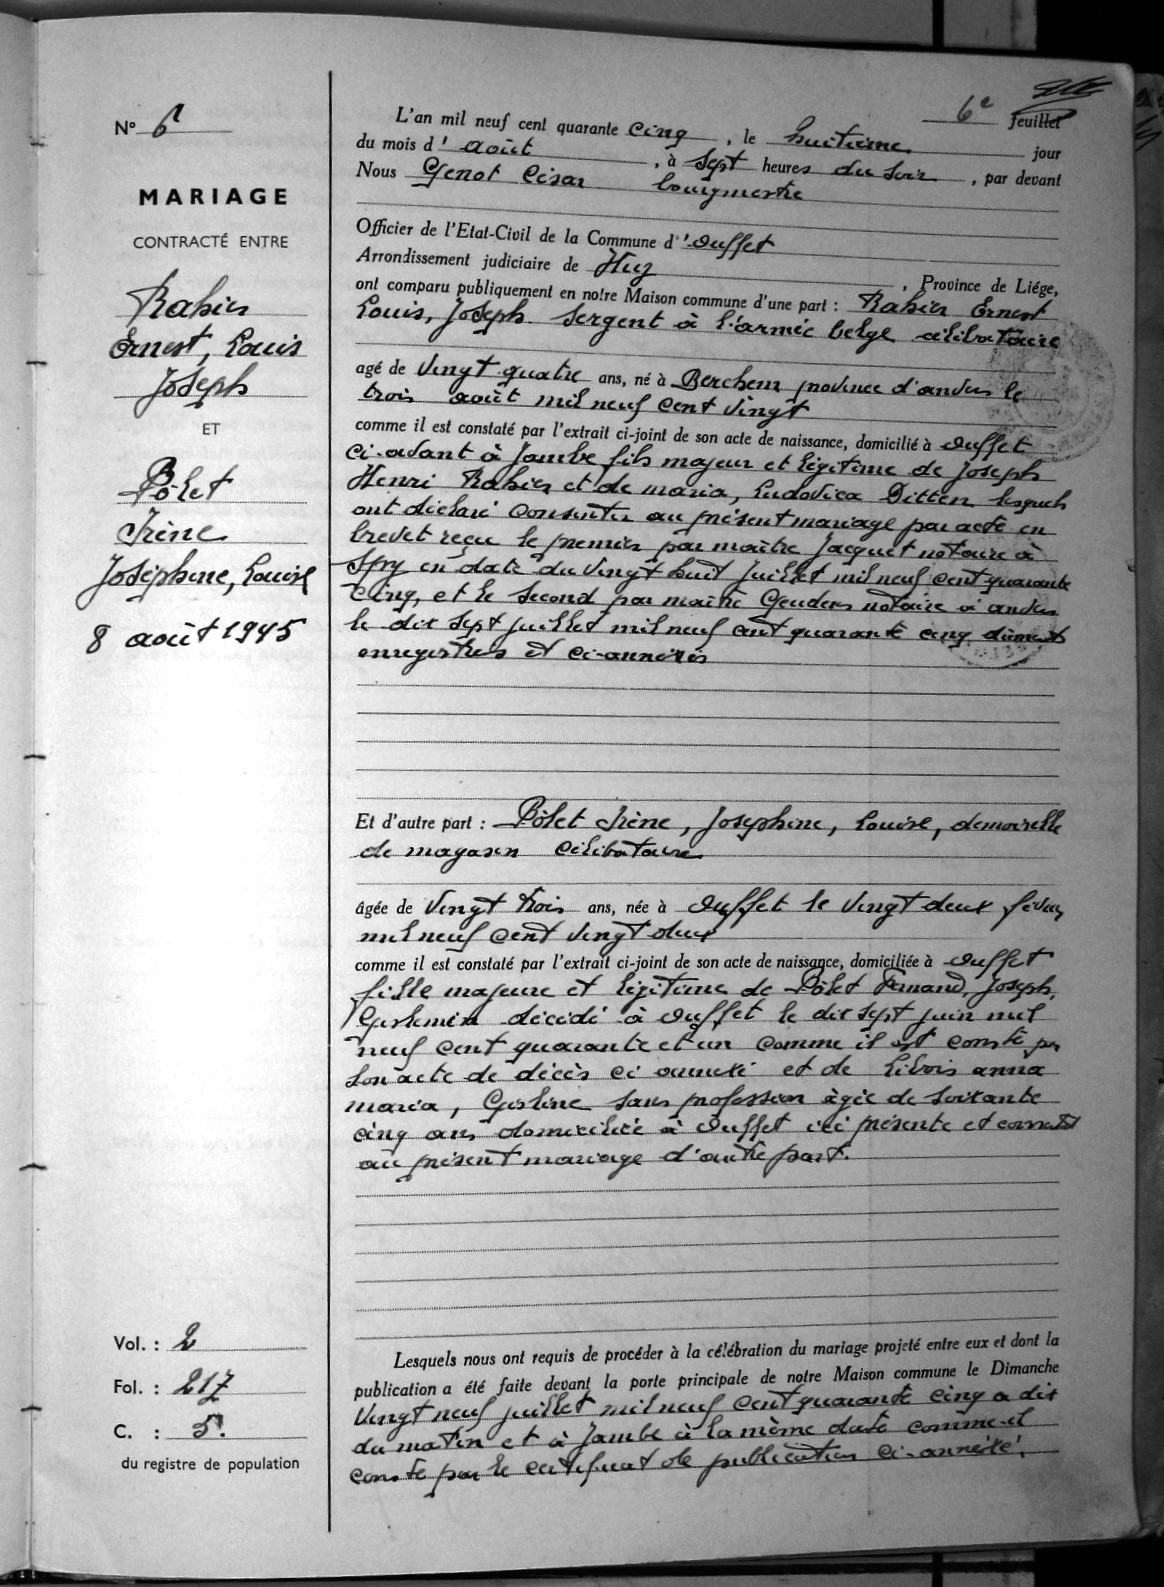 6e feuillet
N° 6
MARIAGE
CONTRACTÉ ENTRE
Rahier
Ernest, Louis
Joseph
ET
Pôlet
Irène
Joséphine, Louise
8 août 1945
Vol. : 2
Fol. : 217
C. : 5.
du registre de population
L'an mil neuf cent quarante cinq, le huitième jour
du mois d' août, à sept heures du soir, par devant
Nous Genot César bourgmestre
Officier de l'Etat-Civil de la Commune d' Ouffet
Arrondissement judiciaire de Huy, Province de Liége,
ont comparu publiquement en notre Maison commune d'une part : Rahier Ernest
Louis, Joseph sergent à l'armée belge célibataire
agé de vingt quatre ans, né à Berchem province d'anvers le
trois août mil neuf cent vingt
comme il est constaté par l'extrait ci-joint de son acte de naissance, domicilié à Ouffet
ci-avant à Jambe fils majeur et légitime de Joseph
Henri Rahier et de maria, Ludovica Ditten lesquels
ont déclaré consentir au présent mariage par acte en
brevet reçu le premier par maître Jacquet notaire à
Spy en date du vingt huit juillet mil neuf cent quarante
cinq, et le second par maître notaire à anvers
le dix sept juillet mil neuf cent quarante cinq dûment
enregistrés et ci-annexés
Et d'autre part : Pôlet Irène, Joséphine, Louise, demoiselle
de magasin célibataire
âgée de vingt trois ans, née à Ouffet le vingt deux février
mil neuf cent vingt deux
comme il est constaté par l'extrait ci-joint de son acte de naissance, domiciliée à Ouffet
fille majeure et légitime de Pôlet Fernand, Joseph,
décédé à Ouffet le dix sept juin mil
neuf cent quarante et un comme il est constaté par
son acte de décès ci annexé et de Libois anna
maria, sans profession âgée de soixante
cinq ans domiciliée à Ouffet ici présente et consentant
au présent mariage d'autre part.
Lesquels nous ont requis de procéder à la célébration du mariage projeté entre eux et dont la
publication a été faite devant la porte principale de notre Maison commune le Dimanche
vingt neuf juillet mil neuf cent quarante cinq a dix
du matin et à Jambe à la même date comme il
conste par le certificat de publication ci-annexé.